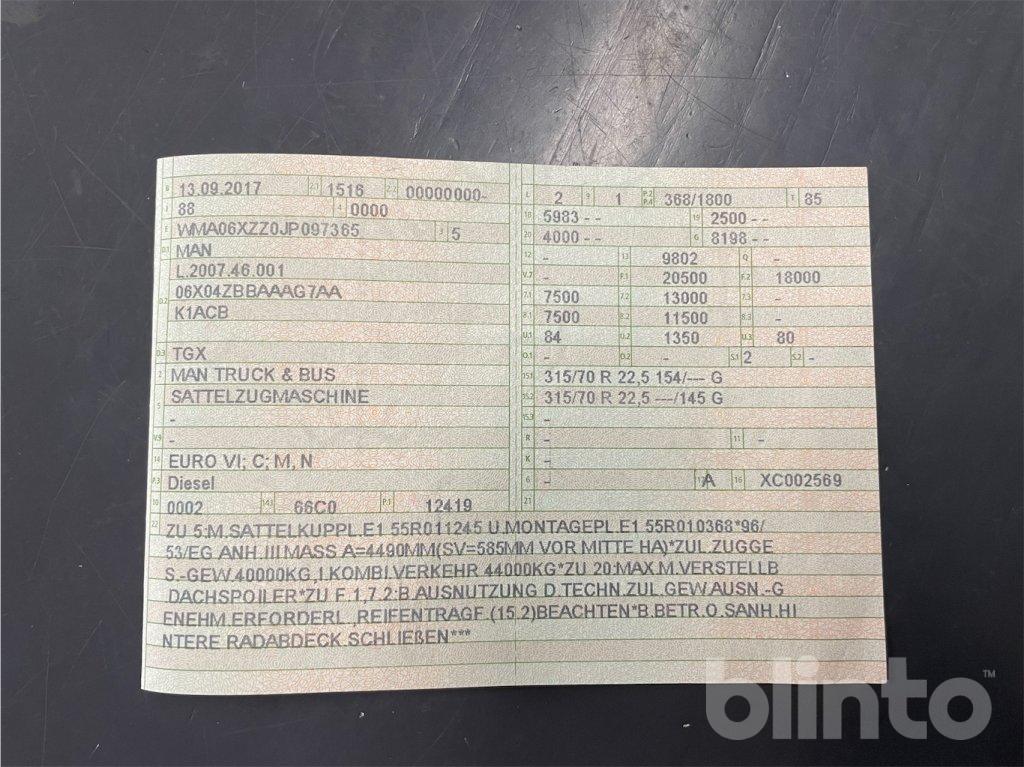 B 13.09.2017 2.1 1516 2.2 00000000-
J 88 4 0000
E WMA06XZZ0JP097365 3 5
D.1 MAN
L.2007.46.001
D.2 06X04ZBBAAAG7AA
K1ACB
D.3 TGX
2 MAN TRUCK & BUS
5 SATTELZUGMASCHINE
-
V.9 -
14 EURO VI; C; M, N
P.3 Diesel
10 0002 14.1 66C0 P.1 12419
L 2 9 1 P.2 P.4 368/1800 T 85
18 5983 - - 19 2500 - -
20 4000 - - G 8198 - -
12 - 13 9802 Q -
V.7 - F.1 20500 F.2 18000
7.1 7500 7.2 13000 7.3 -
8.1 7500 8.2 11500 8.3 -
U.1 84 U.2 1350 U.3 80
O.1 - O.2 - S.1 2 S.2 -
15.1 315/70 R 22,5 154/--- G
15.2 315/70 R 22,5 ---/145 G
15.3 -
R - 11 -
K -
6 - 17 A 16 XC002569
21
22 ZU 5:M.SATTELKUPPL.E1 55R011245 U.MONTAGEPL E1 55R010368*96/
53/EG ANH.III:MASS A=4490MM(SV=585MM VOR MITTE HA)*ZUL.ZUGGE
S.-GEW.40000KG,I.KOMBI.VERKEHR 44000KG*ZU 20:MAX.M.VERSTELLB
DACHSPOILER*ZU F.1,7.2:B.AUSNUTZUNG D.TECHN.ZUL.GEW.AUSN.-G
ENEHM.ERFORDERL.,REIFENTRAGF.(15.2)BEACHTEN*B.BETR.O.SANH.HI
NTERE RADABDECK.SCHLIEßEN***
blinto™